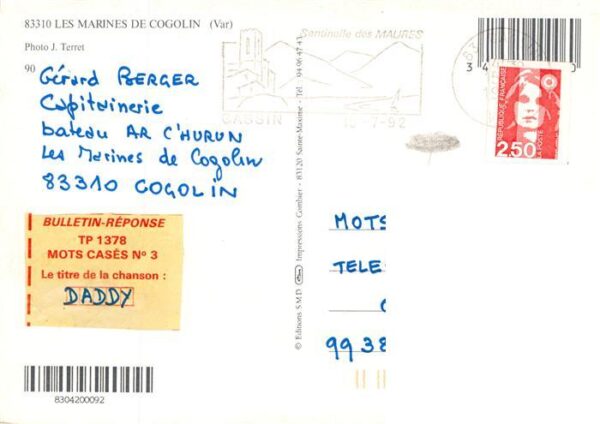 83310 LES MARINES DE COGOLIN (Var)
Photo J. Terret
90
Gérard BERGER
Capitainerie
bateau AR C'HURUN
Les Marines de Cogolin
83310 COGOLIN
BULLETIN-RÉPONSE
TP 1378
MOTS CASÉS Nº 3
Le titre de la chanson :
DADDY
8304200092
© Editions S.M.D. Impressions Combier - 83120 Sainte-Maxime - Tél. 94.96.47.43
Sentinelle des MAURES
GASSIN
-7-92
RÉPUBLIQUE FRANÇAISE
LA POSTE
2,50
MOTS
TELE
99 38